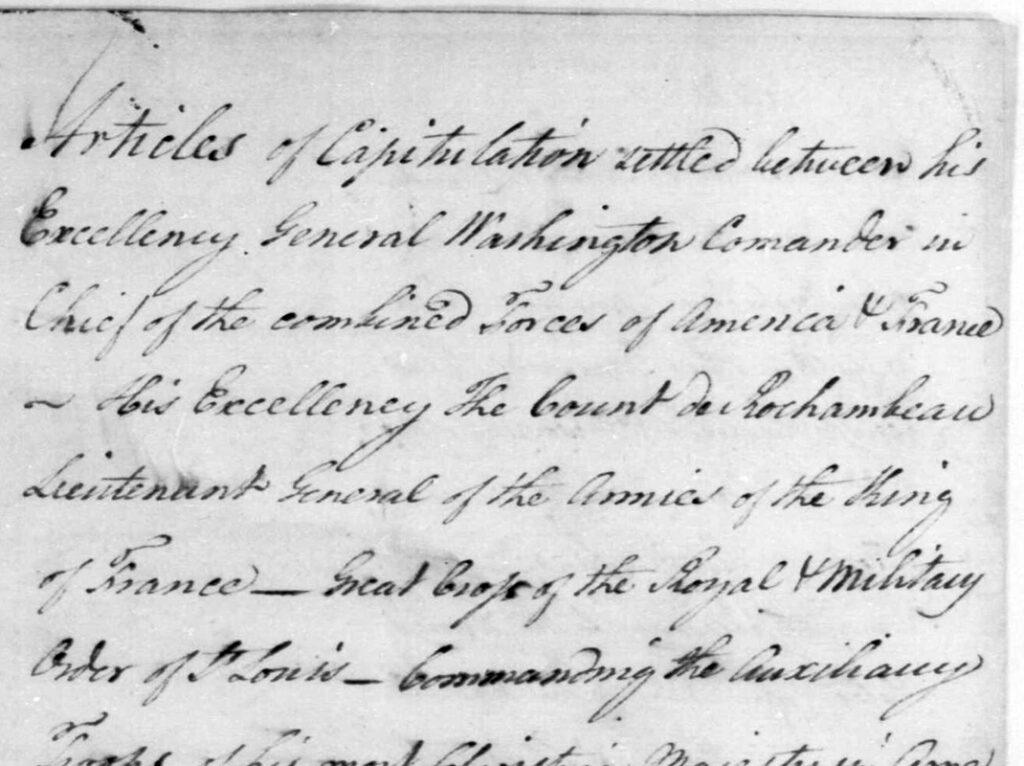 Articles of Capitulation settled between his
Excellency General Washington Comander in
Chief of the combined Forces of America & France
— His Excellency The Count de Rochambeau
Lieutenant General of the Armies of the King
of France — Great Cross of the Royal & Military
Order of St Louis — Commanding the Auxiliary
Troops of his most Christian Majesty in